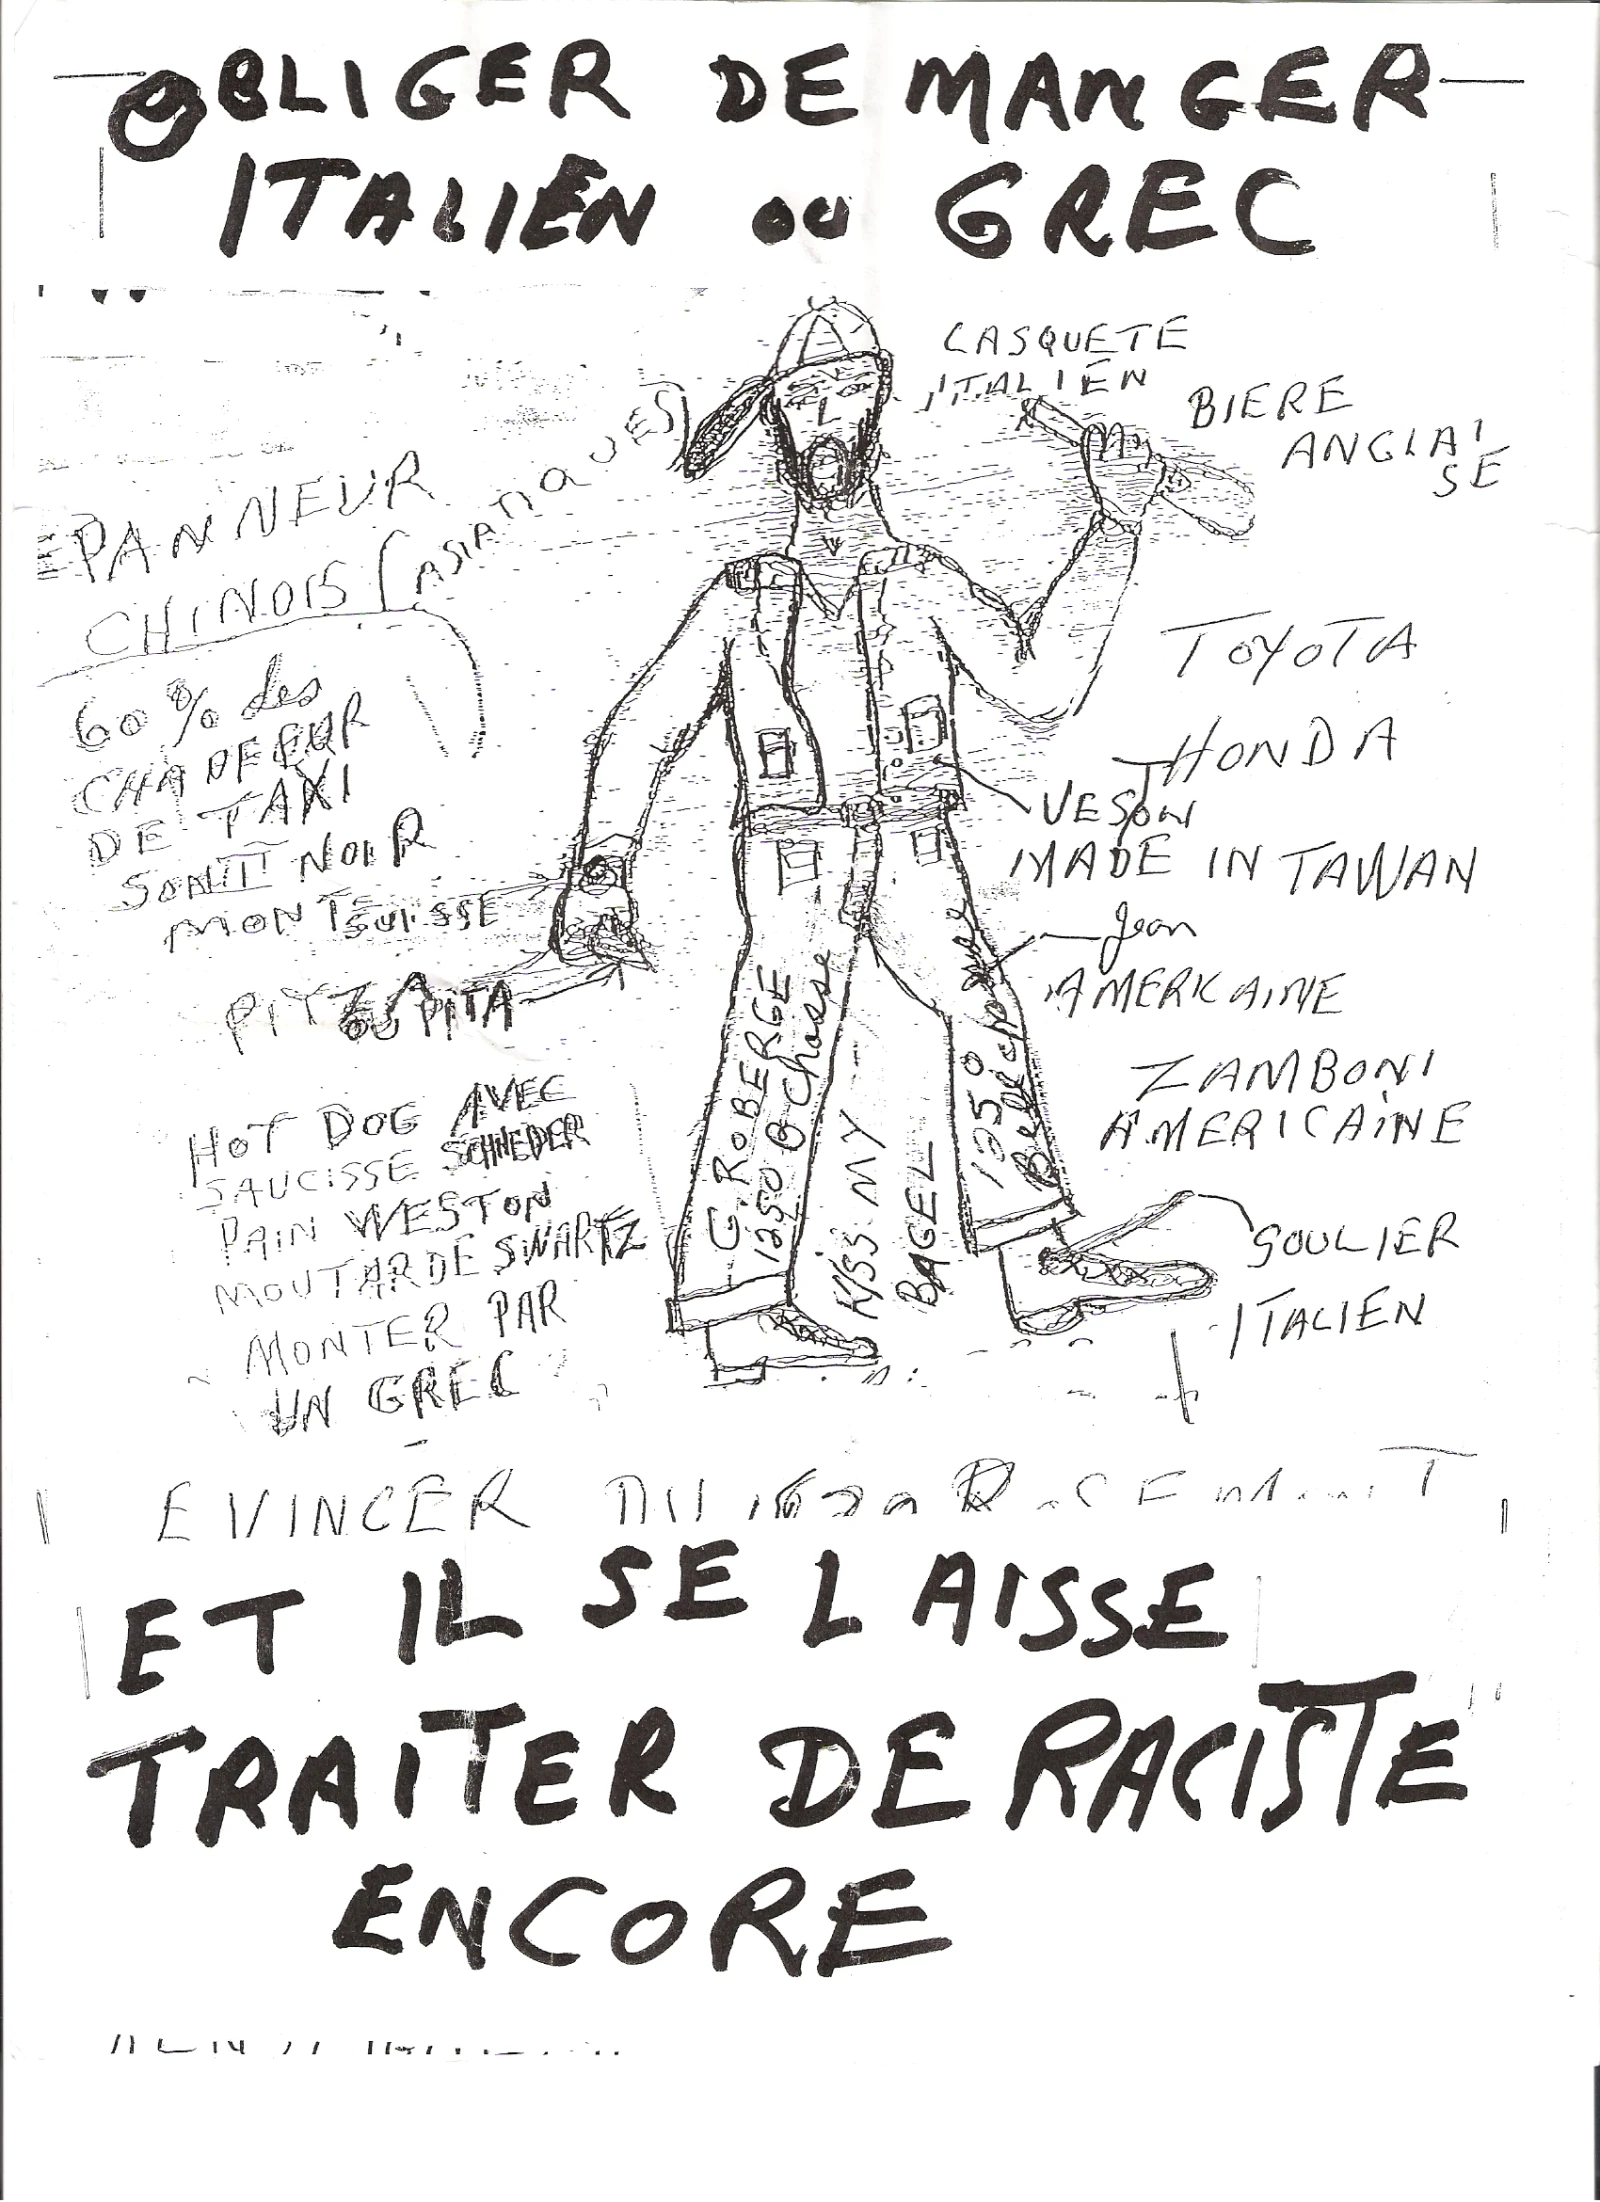 OBLIGER DE MANGER
ITALIEN OU GREC
CASQUETE
ITALIEN
BIERE
ANGLAI
SE
PANNEUR
CHINOIS (ASIATIQUES)
60% des
CHAFEUR
DE TAXI
SONT NOIR
MONTE SUISSE
PITZA
OU PITA
HOT DOG AVEC
SAUCISSE SCHNEDER
PAIN WESTON
MOUTARDE SWARTZ
MONTER PAR
UN GREC
TOYOTA
HONDA
VESTON
MADE IN TAWAN
Jean
AMERICAINE
ZAMBONI
AMERICAINE
SOULIER
ITALIEN
G. ROBERGE
1250 B Chasse
KISS MY
BAGEL
1250
EVINCER
ET IL SE LAISSE
TRAITER DE RACISTE
ENCORE